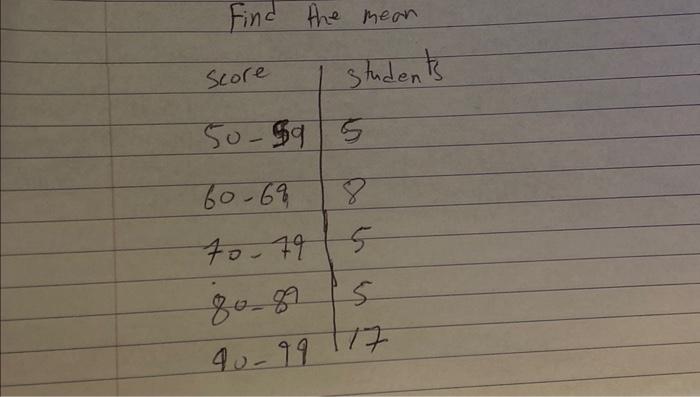 Find the mean
score students
50-59 5
60-69 8
70-79 5
80-89 5
90-99 17